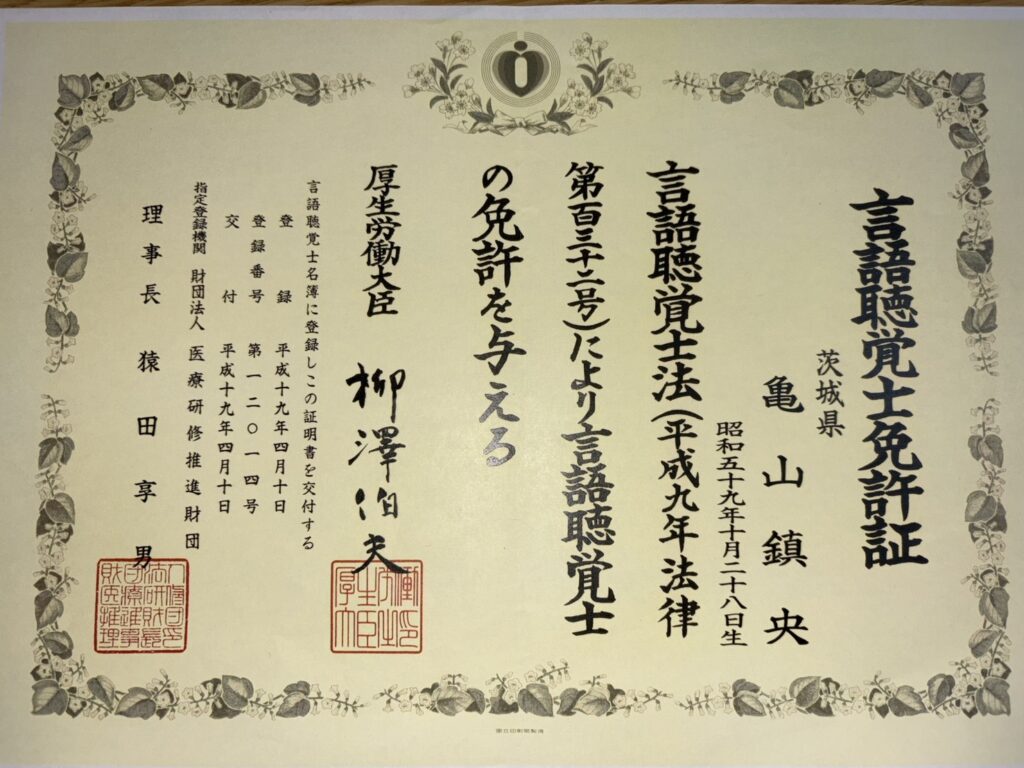 言語聴覚士免許証
茨城県
亀山鎮央
昭和五十九年十月二十八日生
言語聴覚士法(平成九年法律
第百三十二号)により言語聴覚士
の免許を与える
厚生労働大臣 柳澤伯夫
言語聴覚士名簿に登録しこの証明書を交付する
登録 平成十九年四月十日
登録番号 第一二〇一四号
交付 平成十九年四月十日
指定登録機関 財団法人 医療研修推進財団
理事長 猿田享男